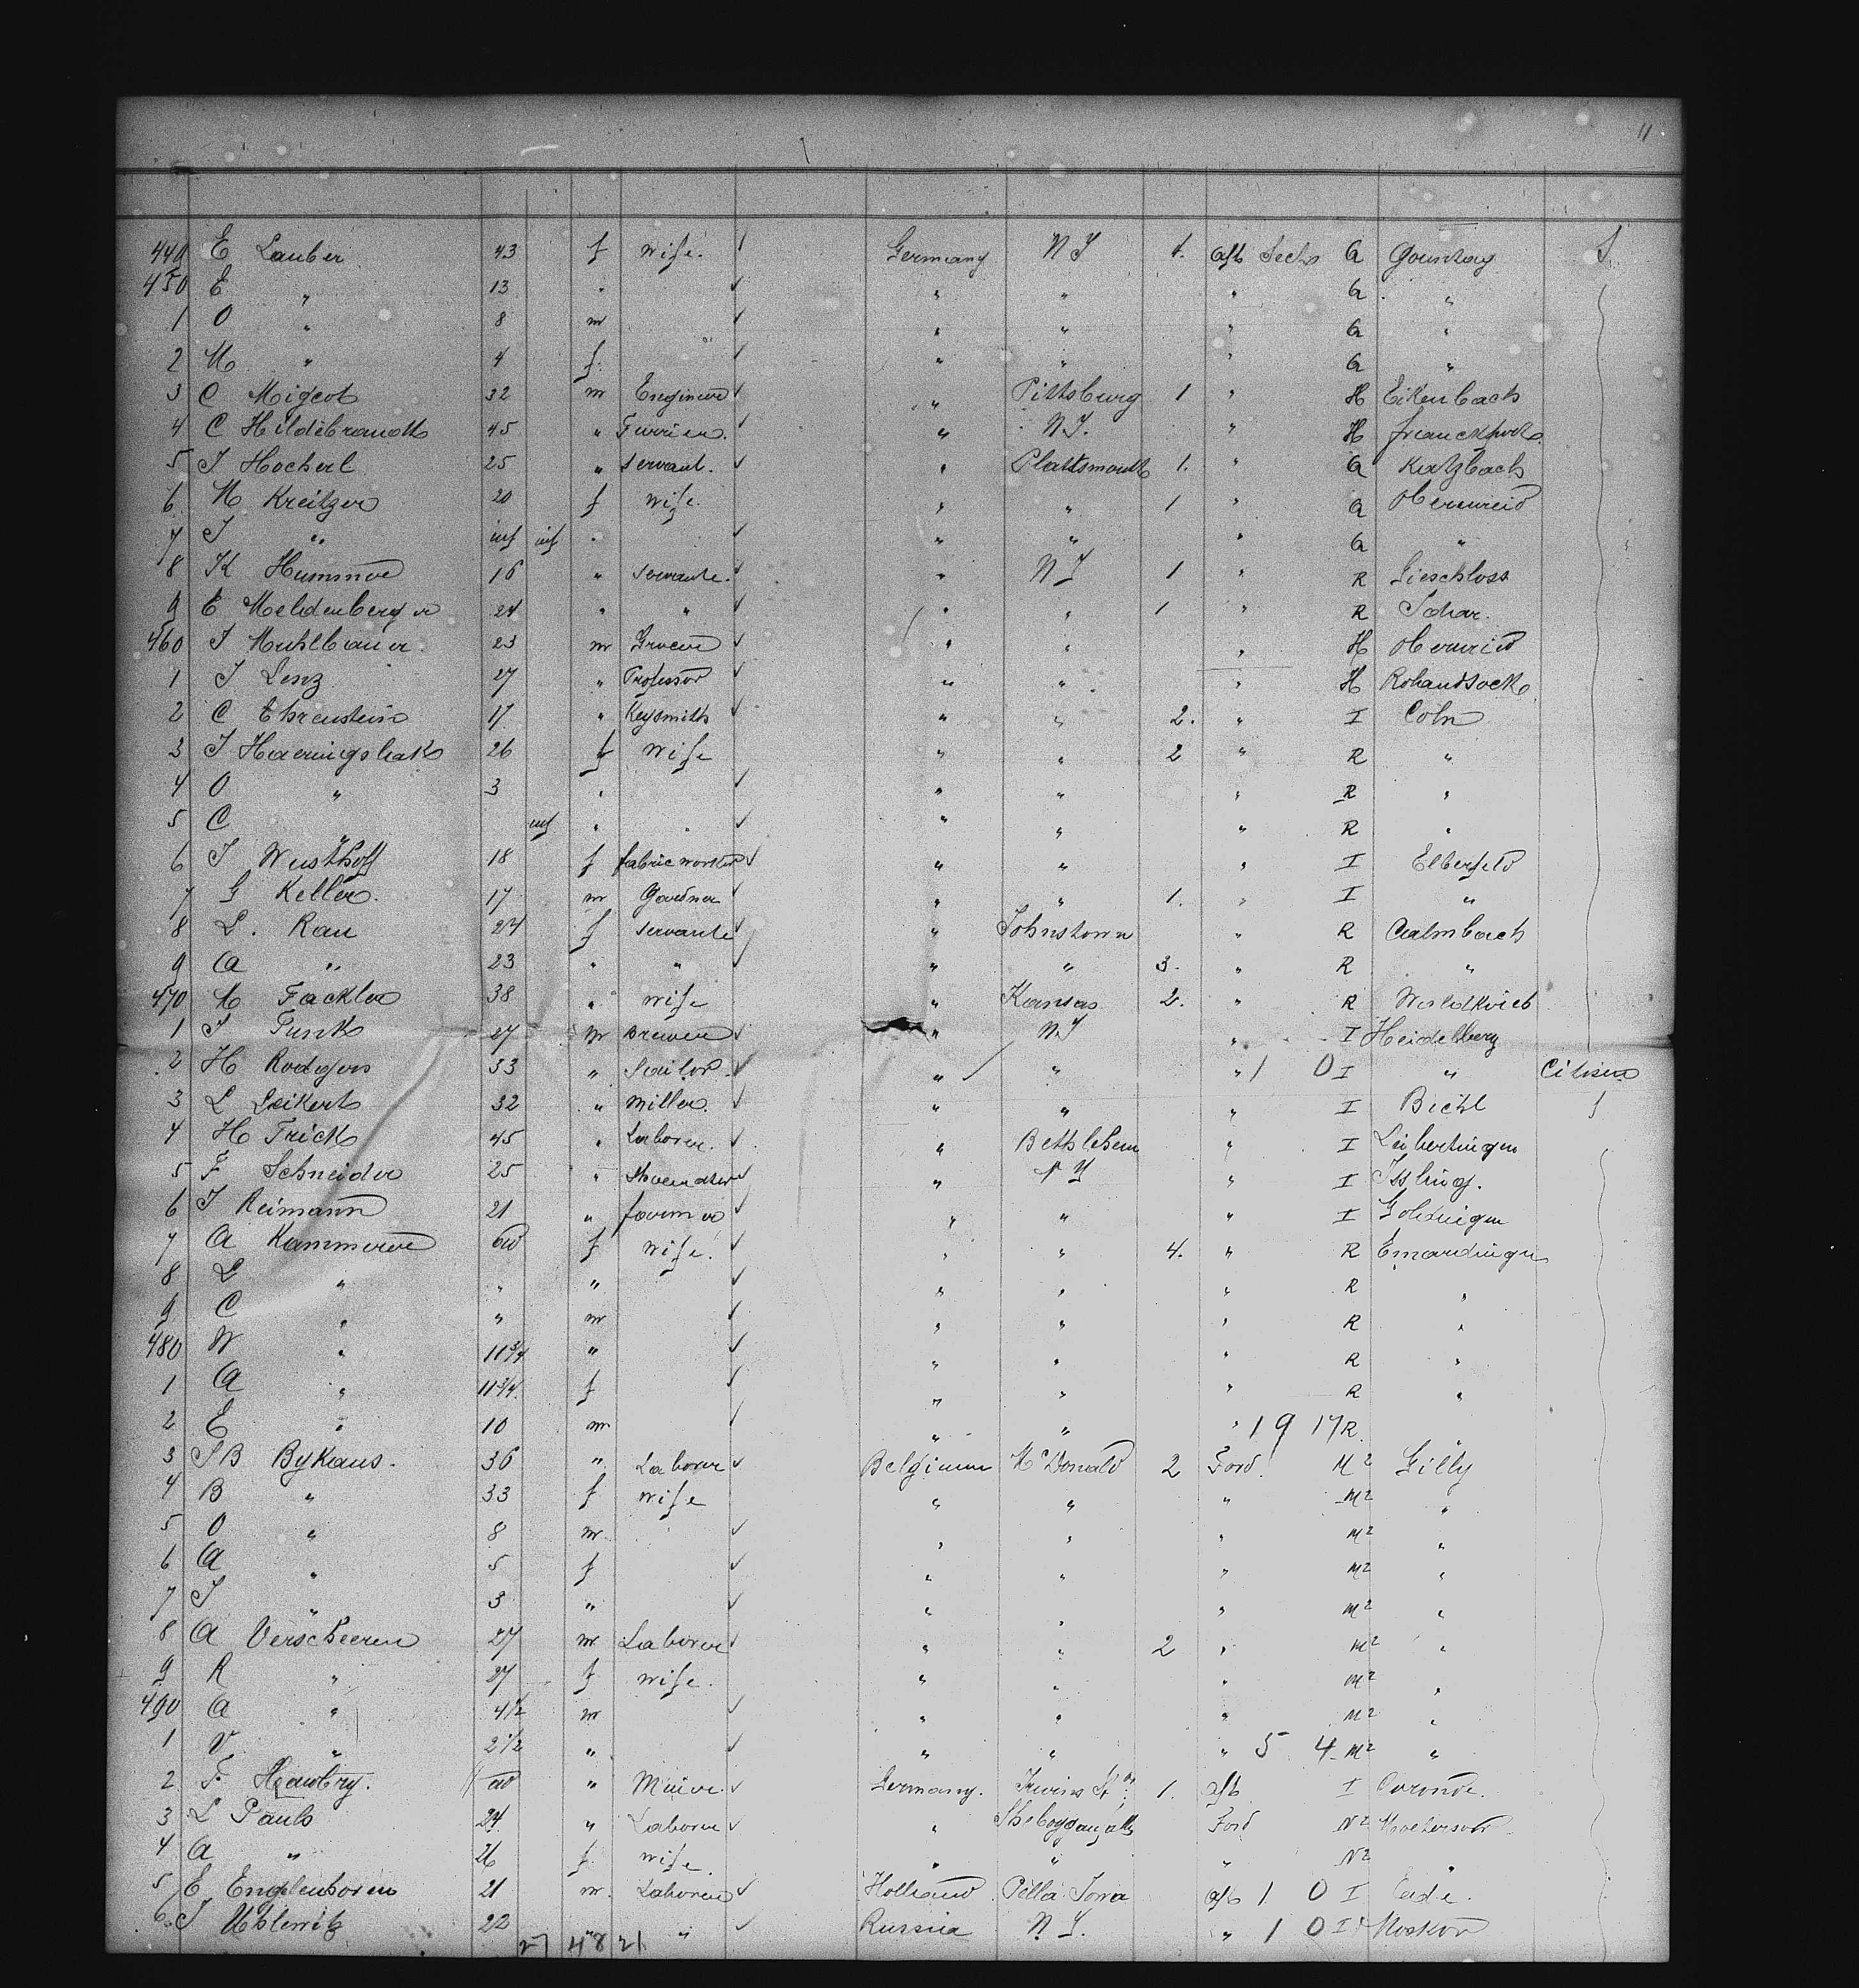 11
449 E Lauber 43 f wife. Germany N Y 1. aft Sects G S
450 E " 13 " " " " G "
1 O " 8 m " " " G "
2 M " 4 f. " " " G "
3 C Migeot 32 m Engineer " Pittsburg 1 " H Eikenbach
4 C Hildebrandt 45 " Furrier. " N.Y. " H
5 J Hocherl 25 " servant. " Plattsmouth 1. " G Katzbach
6 M Kreitzer 20 f wife. " " 1 " G
7 J " inf inf " " " " G "
8 K Hummer 16 " servante. " N Y 1 " R Gieschloss
9 E Meldenberger 24 " " " " 1 " R
460 J Muhlbauer 23 m Grocer " " " H
1 J Lenz 27 " Professor " " " H
2 C Ehrenstein 17 " Keysmith " " 2. " I Coln
3 J 26 f wife " " 2 " R "
4 O " 3 " " " " R "
5 C " inf " " " " " R "
6 J Wusthoff 18 f fabric worker " " " I Elberfeld
7 G Keller. 17 m Gardner " " 1. " I "
8 L. Rau 24 f servante " Johnstown " R Calmbach
9 A " 23 " " " " 3. " R "
470 M Fackler 38 " wife " Kansas 2. " R
1 J Funk 27 m Brewer " N.Y " I Heidelberg
2 H Rodgers 33 " Sailor " " " 1 0 I " Citisen
3 L Leikert 32 " Miller. " " " I Biehl
4 H Frick 45 " Laborer. " Bethlehem " I Leibertingen
5 F Schneider 25 " " N Y " I Issling.
6 J Reimann 21 " farmer " " " I
7 A Kammerer ad f wife. " " 4. " R
8 L " " " " " " R "
9 C " " m " " " R "
480 W " 11 3/4 " " " " R "
1 A " 11 3/4 f " " " R "
2 E " 10 m " " " 19 17 R. "
3 J B Bykans. 36 " Laborer Belgium McDonald 2 Ford. M2 Gilly
4 B " 33 f wife " " " M2 "
5 O " 8 m. " " " M2 "
6 A " 5 f " " " M2 "
7 J " 3 " " " " M2 "
8 A Verscheeren 27 m Laborer " " 2 " M2 "
9 R " 27 f wife. " " " M2 "
490 A " 4 1/2 m " " " M2 "
1 V " 2 1/2 " " " " 5 4 M2 "
2 F. ad " Germany. 1. aft I
3 L Pauls 24 " Laborer " Ford N2
4 A " 26 f wife. " " " N2 "
5 E Englenhoren 21 m. Laborer Holland Pella Iowa aft 1 0 I Eede.
6 J 22 " " Russia N.Y. " 1 0 I Moskow
27 48 21